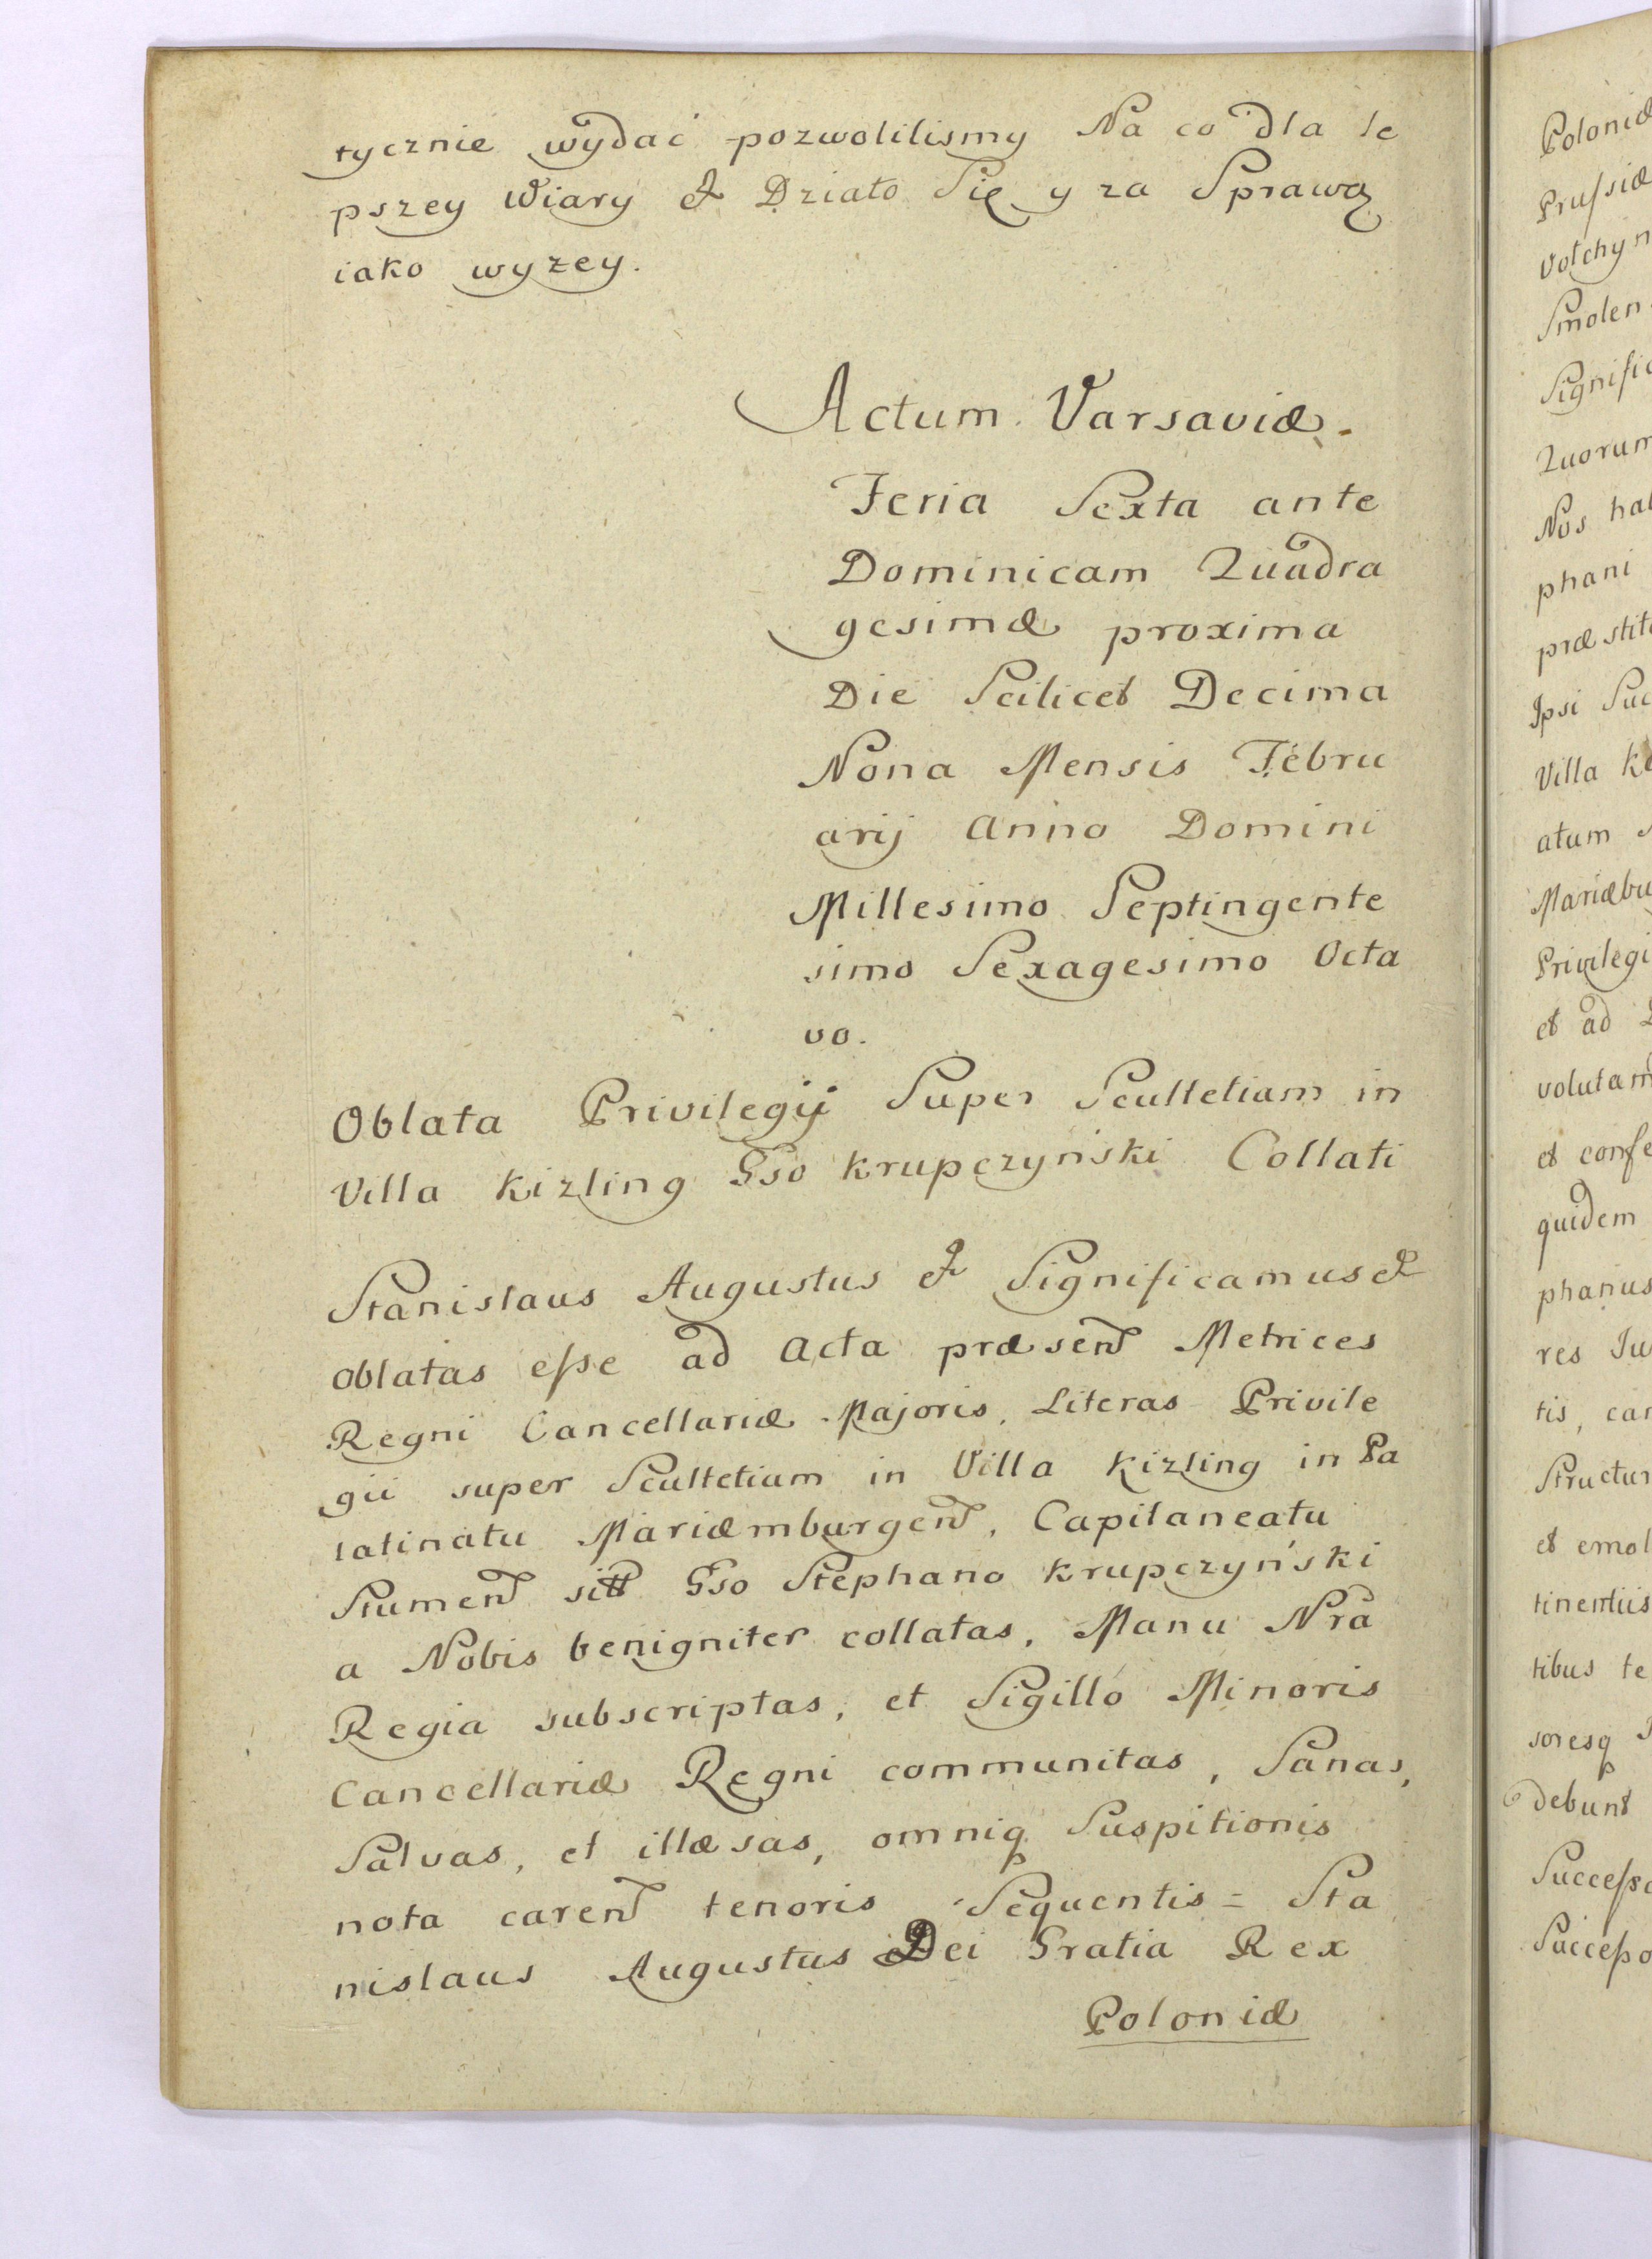 tycznie wydać pozwolilismy Na co dla le
pszey Wiary & Działo Się y za Sprawą
iako wyzey.
Actum Varsaviæ.
Feria Sexta ante
Dominicam Quadra
gesimæ proxima
Die Scilicet Decima
Nona Mensis Febru
arij Anno Domini
Millesimo Septingente
simo Sexagesimo Octa
vo.
Oblata Privilegij Super Scultetiam in
Villa Kizling Gso Krupczyński Collati
Stanislaus Augustus & Significamus &
oblatas esse ad Acta præsen Metrices
Regni Cancellariæ Majoris, Literas Privile
gii super Scultetiam in Villa Kizling in Pa
latinatu Mariæmburgen, Capitaneatu
Stumen sitt Gso Stephano Krupczyński
a Nobis benigniter collatas, Manu Nra
Regia subscriptas, et Sigillo Minoris
Cancellariæ Regni communitas, Sanas,
Salvas, et illæsas, omniq Suspitionis
nota caren tenoris Sequentis = Sta
nislaus Augustus Dei Gratia Rex
Poloniæ
Poloniæ
Prussiæ
Volhyn
Smolen
Signific
Quorum
Nos hab
phani
præstit
Ipsi Suc
Villa K
atum
Mariæbu
Privilegi
et ad
volutam
et confe
quidem
phanus
res Iu
tis, car
Structur
et emol
tinentiis
tibus te
soresq
debunt
Successo
Successo